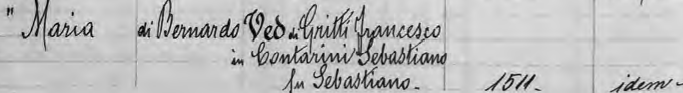 " Maria di Bernardo Ved di Gritti Francesco
in Contarini Sebastiano
fu Sebastiano. 1511. idem.